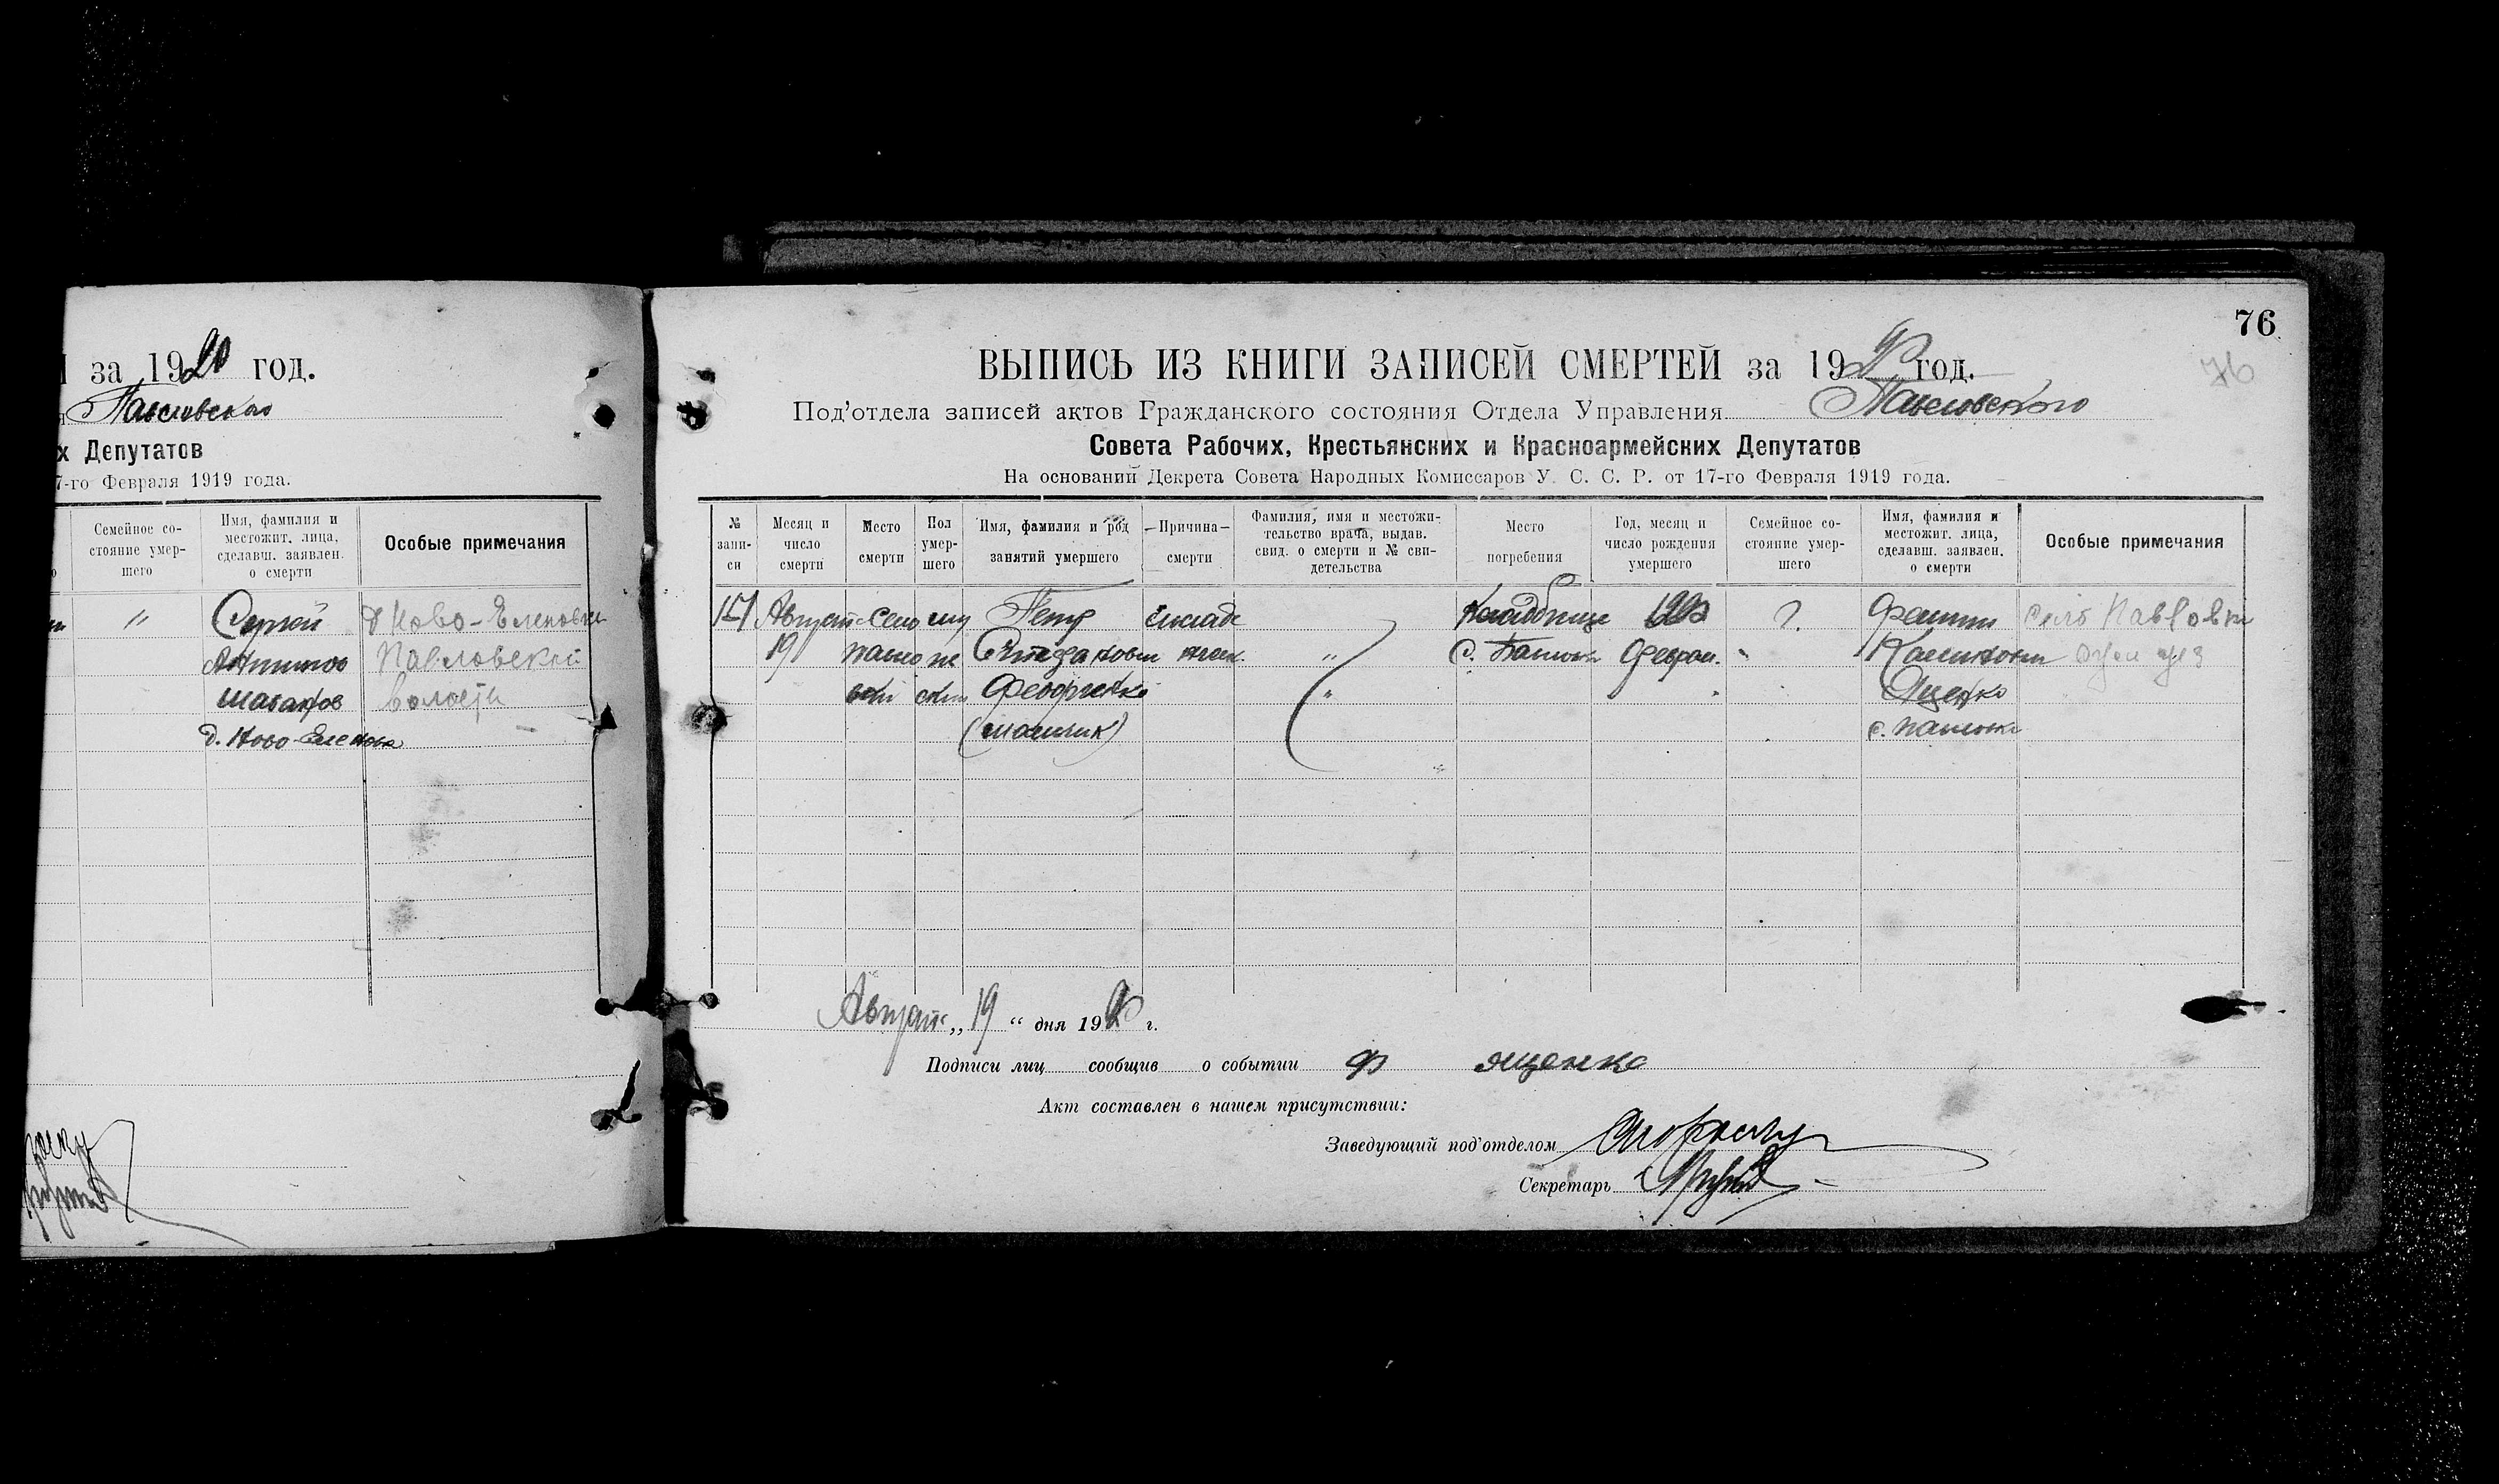 за 1920 год.
Павловского
х Депутатов
7-го Февраля 1919 года.
Семейное со-
стояние умер-
шего
Имя, фамилия и
местожит. лица,
сделавш. заявлен.
о смерти
Особые примечания
"
Сергей
Шаванов
д. Ново-Еленовка
д Ново-Еленовки
Павловской
волости
76
76
ВЫПИСЬ ИЗ КНИГИ ЗАПИСЕЙ СМЕРТЕЙ за 1920 год.
Под'отдела записей актов Гражданского состояния Отдела Управления Павловского
Совета Рабочих, Крестьянских и Красноармейских Депутатов
На оснований Декрета Совета Народных Комиссаров У. С. С. Р. от 17-го Февраля 1919 года.
№
запи-
си
Месяц и
число
смерти
Место
смерти
Пол
умер-
шего
Имя, фамилия и род
занятий умершего
Причина
смерти
Фамилия, имя и местожи-
тельство врача, выдав.
свид. о смерти и № сви-
детельства
Место
погребения
Год, месяц и
число рождения
умершего
Семейное со-
стояние умер-
шего
Имя, фамилия и
местожит. лица,
сделавш. заявлен.
о смерти
Особые примечания
Август
19
Село
муж
ской
Петр
Федорченко
(мальчик)
"
"
Кладбище
с.
1920
Феврал.
?
Ященко
с. Павловка
село Павловки
Август „ 19 “ дня 1920 г.
Подписи лиц сообщив о событии Ф Ященко
Акт составлен в нашем присутствии:
Заведующий под'отделом
Секретарь